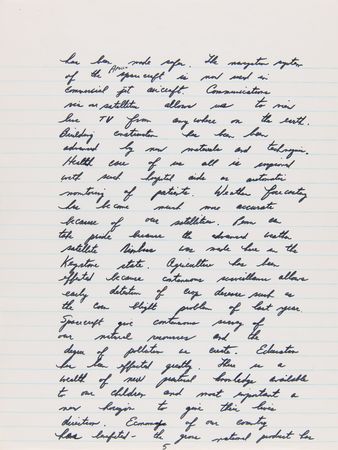 has been made safer. The navigation system
of the Apollo spacecraft is now used in
commercial jet aircraft. Communications
via satellites allows us to view
live TV from anywhere on the earth.
Building construction has been
advanced by new materials and techniques.
Health care of us all is improved
with such hospital aids as automatic
monitoring of patients. Weather forecasting
has become much more accurate
because of our satellites. Penn can
take pride because the advanced weather
satellite Nimbus was made here in the
Keystone state. Agriculture has been
effected because continuous surveillance allows
early detection of crop disease such as
the corn blight problem of last year.
Spacecraft give continuous survey of
our natural resources and the
degree of pollution in exists. Education
has been effected greatly. There is a
wealth of new practical knowledge available
to our children and most important a
new horizon to give their lives
direction. Economy of our country
has benefited - the gross national product has
5